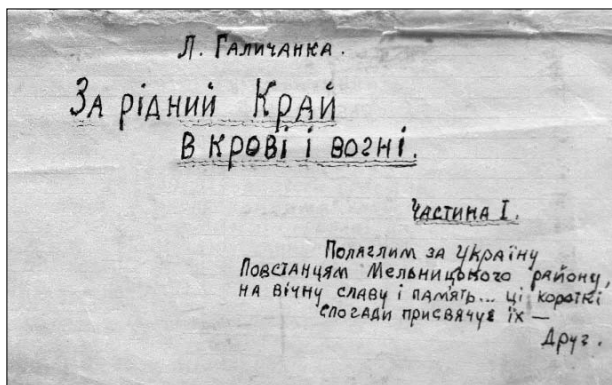 Л. Галичанка.
За рідний Край
в крові і вогні.
Частина I.
Поляглим за Україну
Повстанцям Мельницького району,
на вічну славу і память... ці короткі
спогади присвячує їх —
Друг.